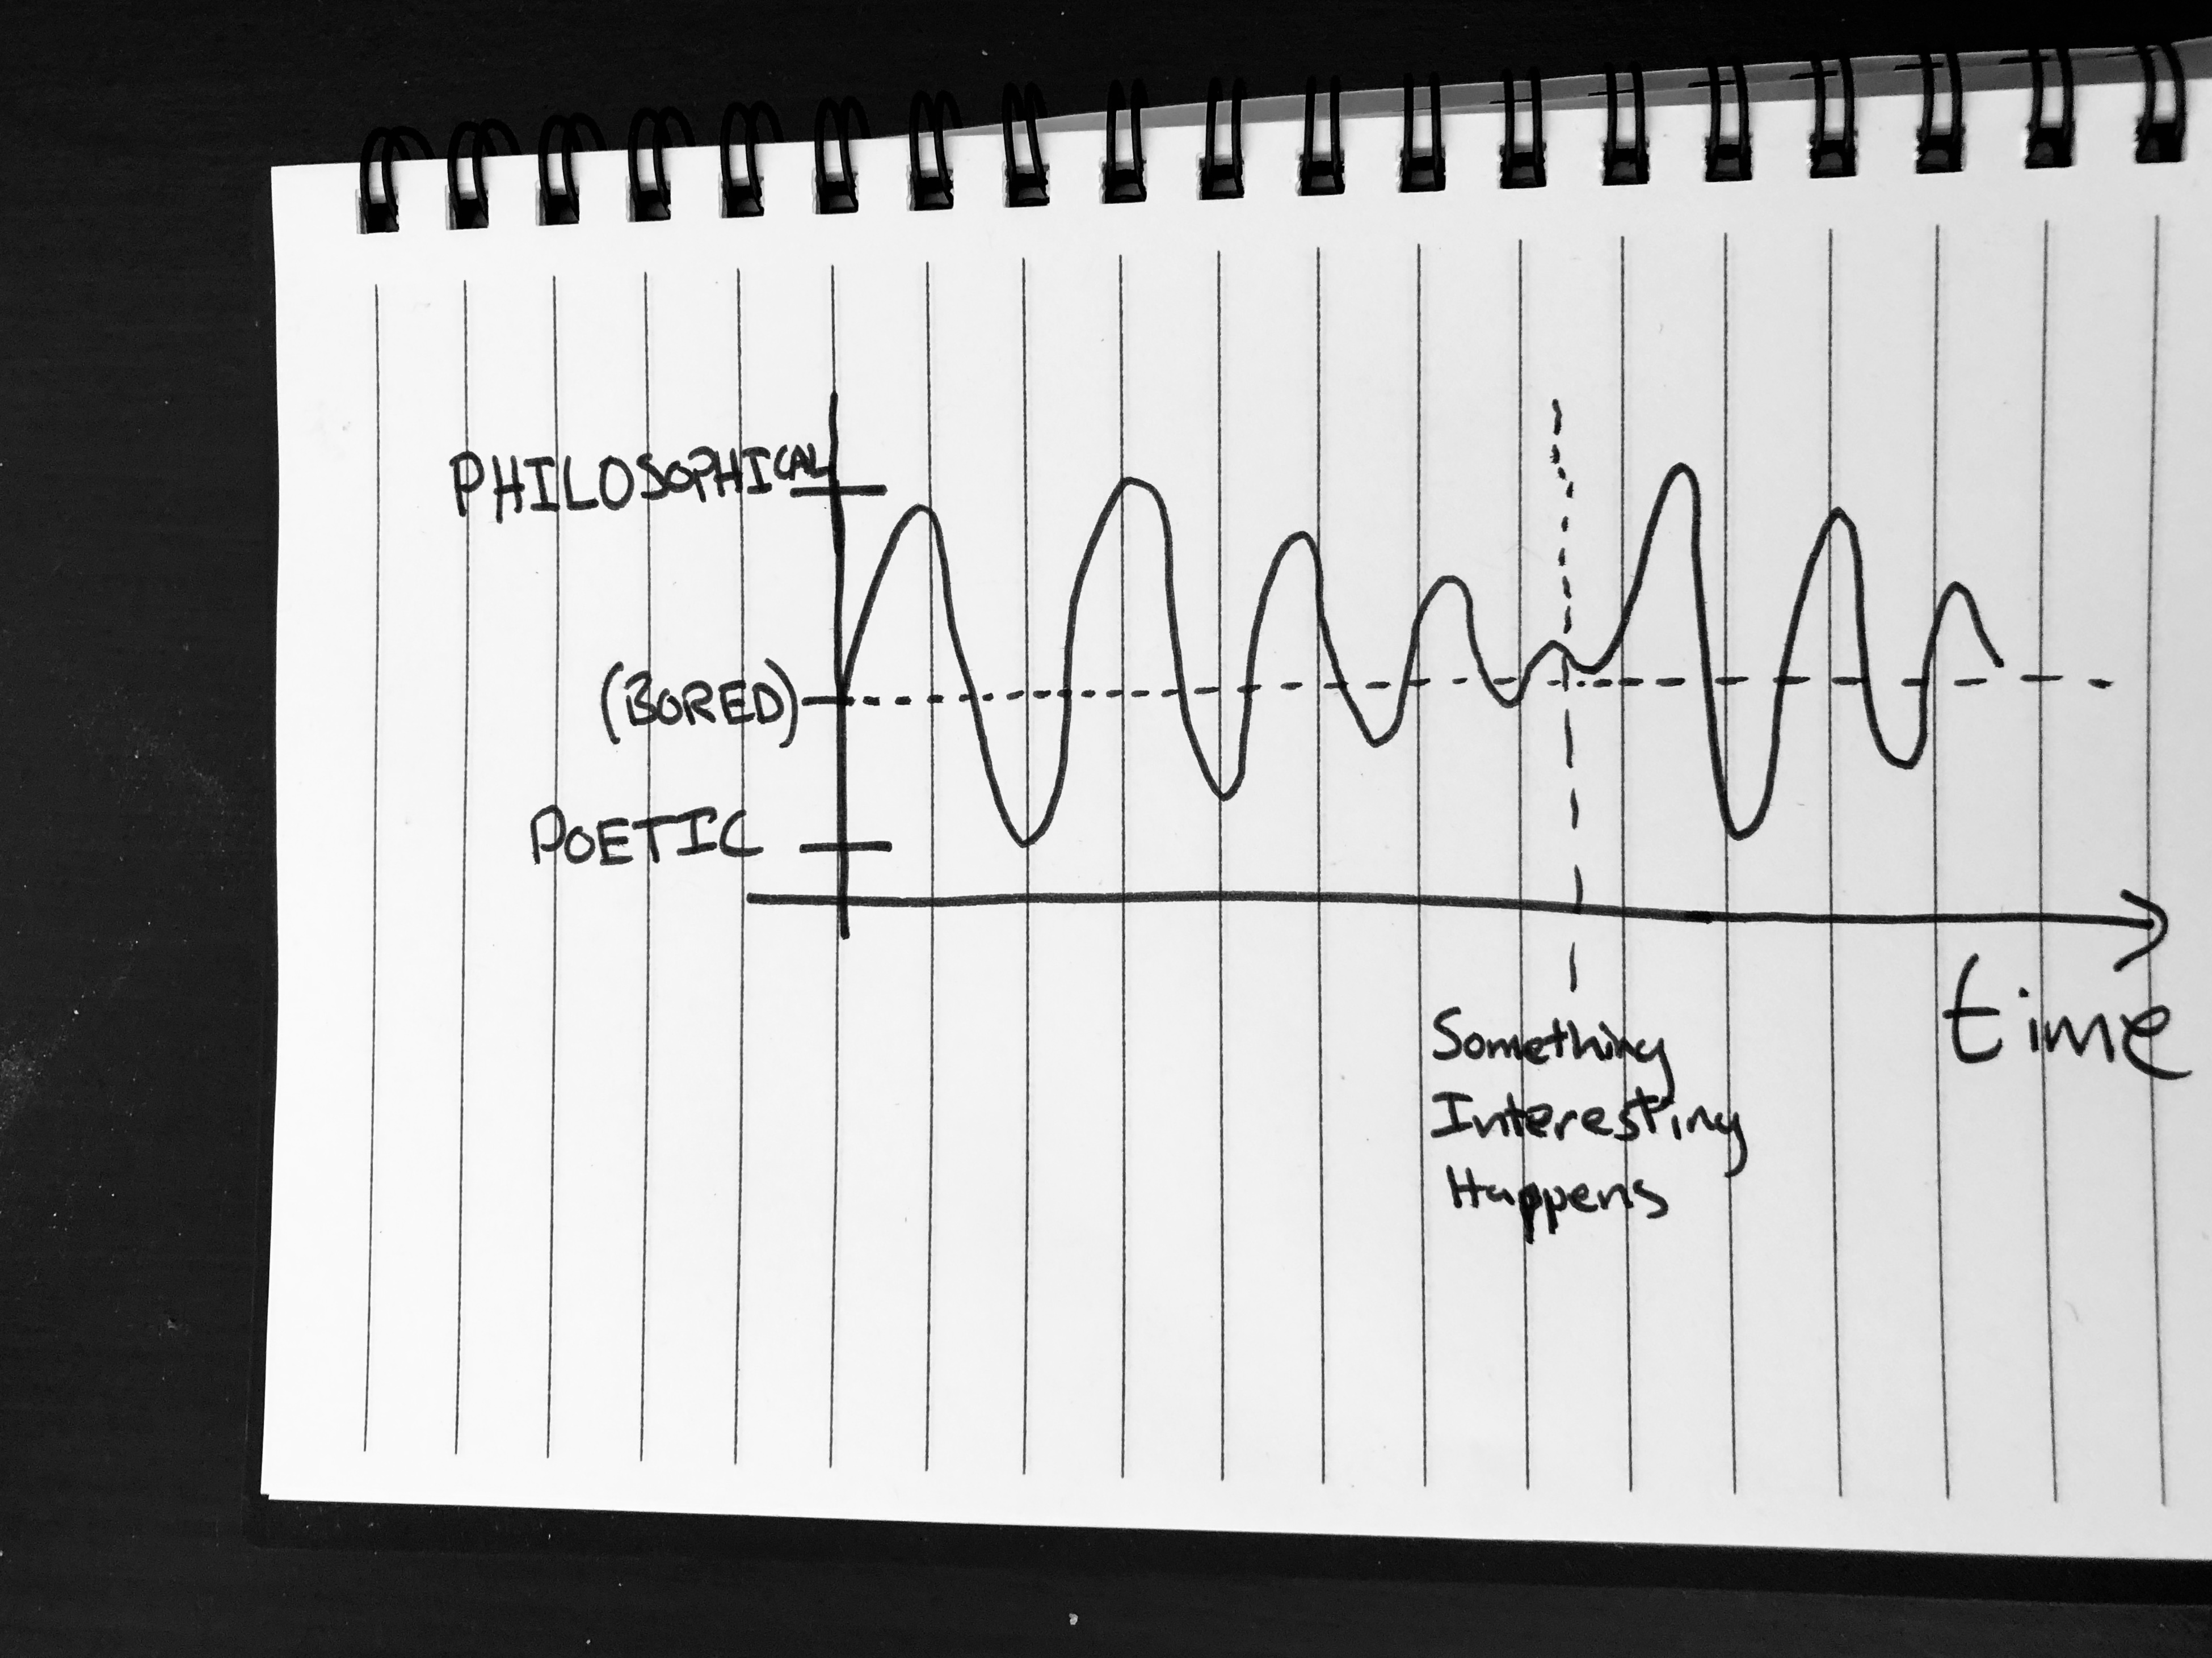 PHILOSOPHICAL
(BORED)
POETIC
time
Something
Interesting
Happens